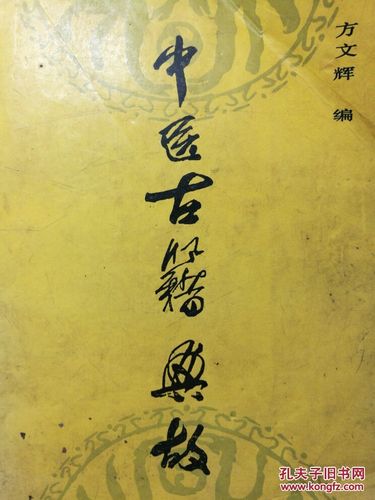 方文辉 编
中医古籍典故
孔夫子旧书网
www.kongfz.com